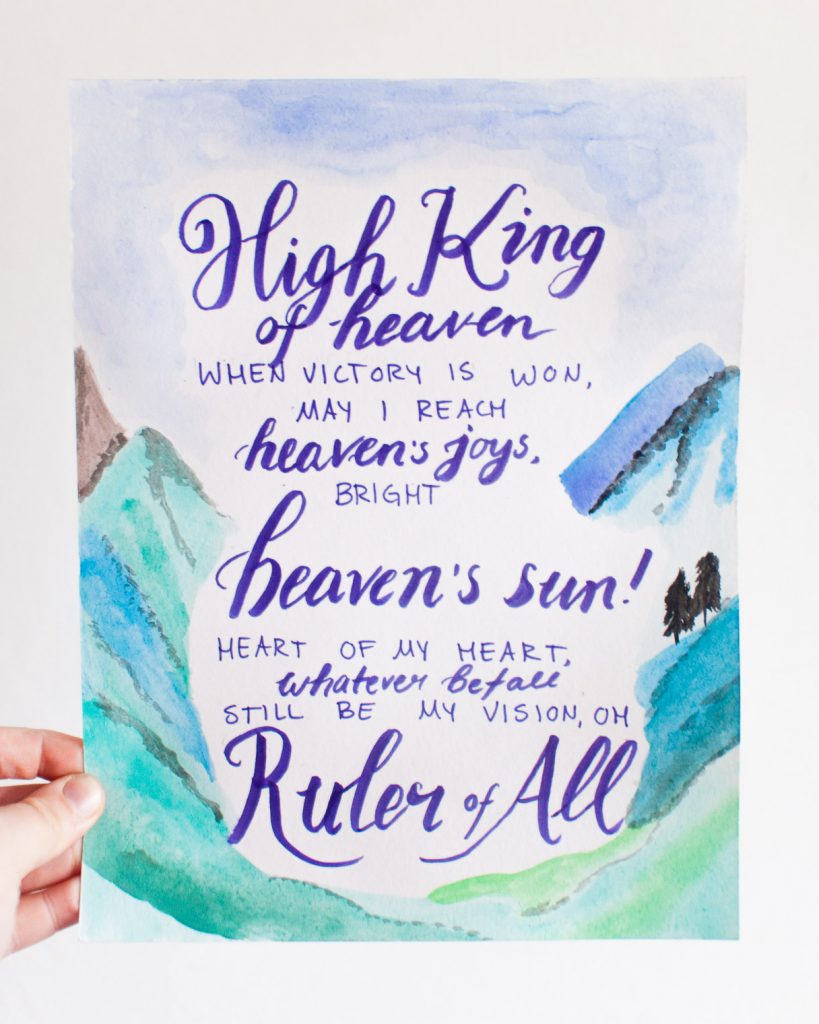 High King
of heaven
WHEN VICTORY IS WON,
MAY I REACH
heaven's joys,
BRIGHT
heaven's sun!
HEART OF MY HEART,
whatever befall
STILL BE MY VISION, OH
Ruler of All